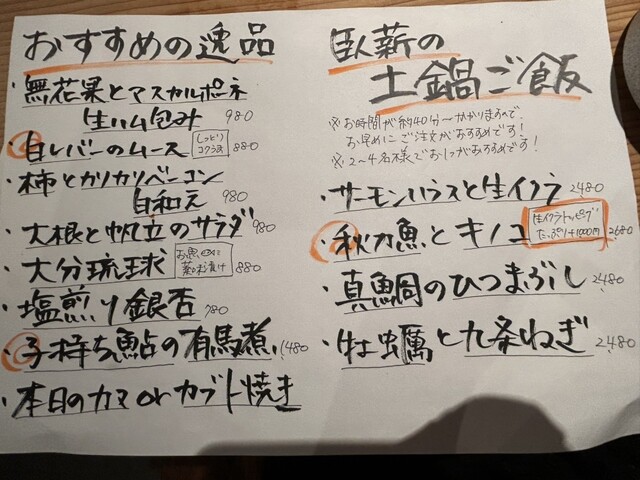 おすすめの逸品
・無花果とマスカルポーネ
生ハム包み 980
・白レバーのムース しっとりコクうま 880
・柿とカリカリベーコン
白和え 980
・大根と帆立のサラダ 980
・大分琉球 880
・塩煎り銀杏 780
・子持ち鮎の有馬煮 1,480
・本日のカマorカブト焼き
臥薪の
土鍋ご飯
※お時間が約40分〜かかりますので、
お早めにご注文がおすすめです!
※2〜4名様でおしっがおすすめです!
・サーモンハラスと生イクラ 2,480
・秋刀魚とキノコ 2,680
生イクラトッピング
たっぷり+1000円
・真鯛のひつまぶし 2,480
・牡蠣と九条ねぎ 2,480